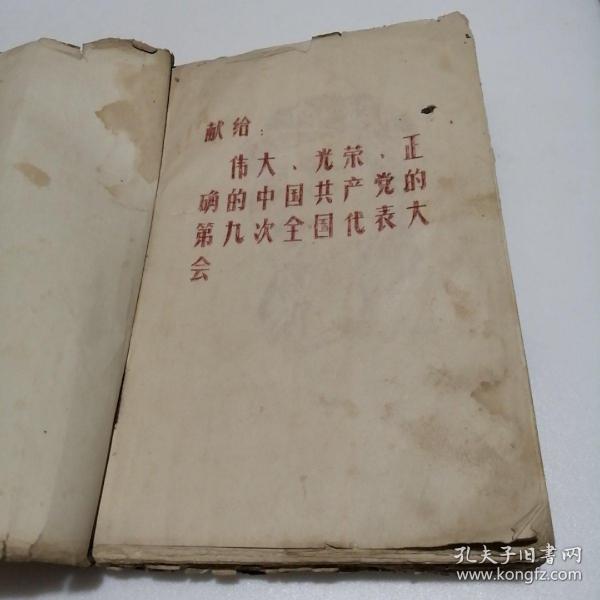 献给：
伟大、光荣、正
确的中国共产党的
第九次全国代表大
会
孔夫子旧书网
www.kongfz.com